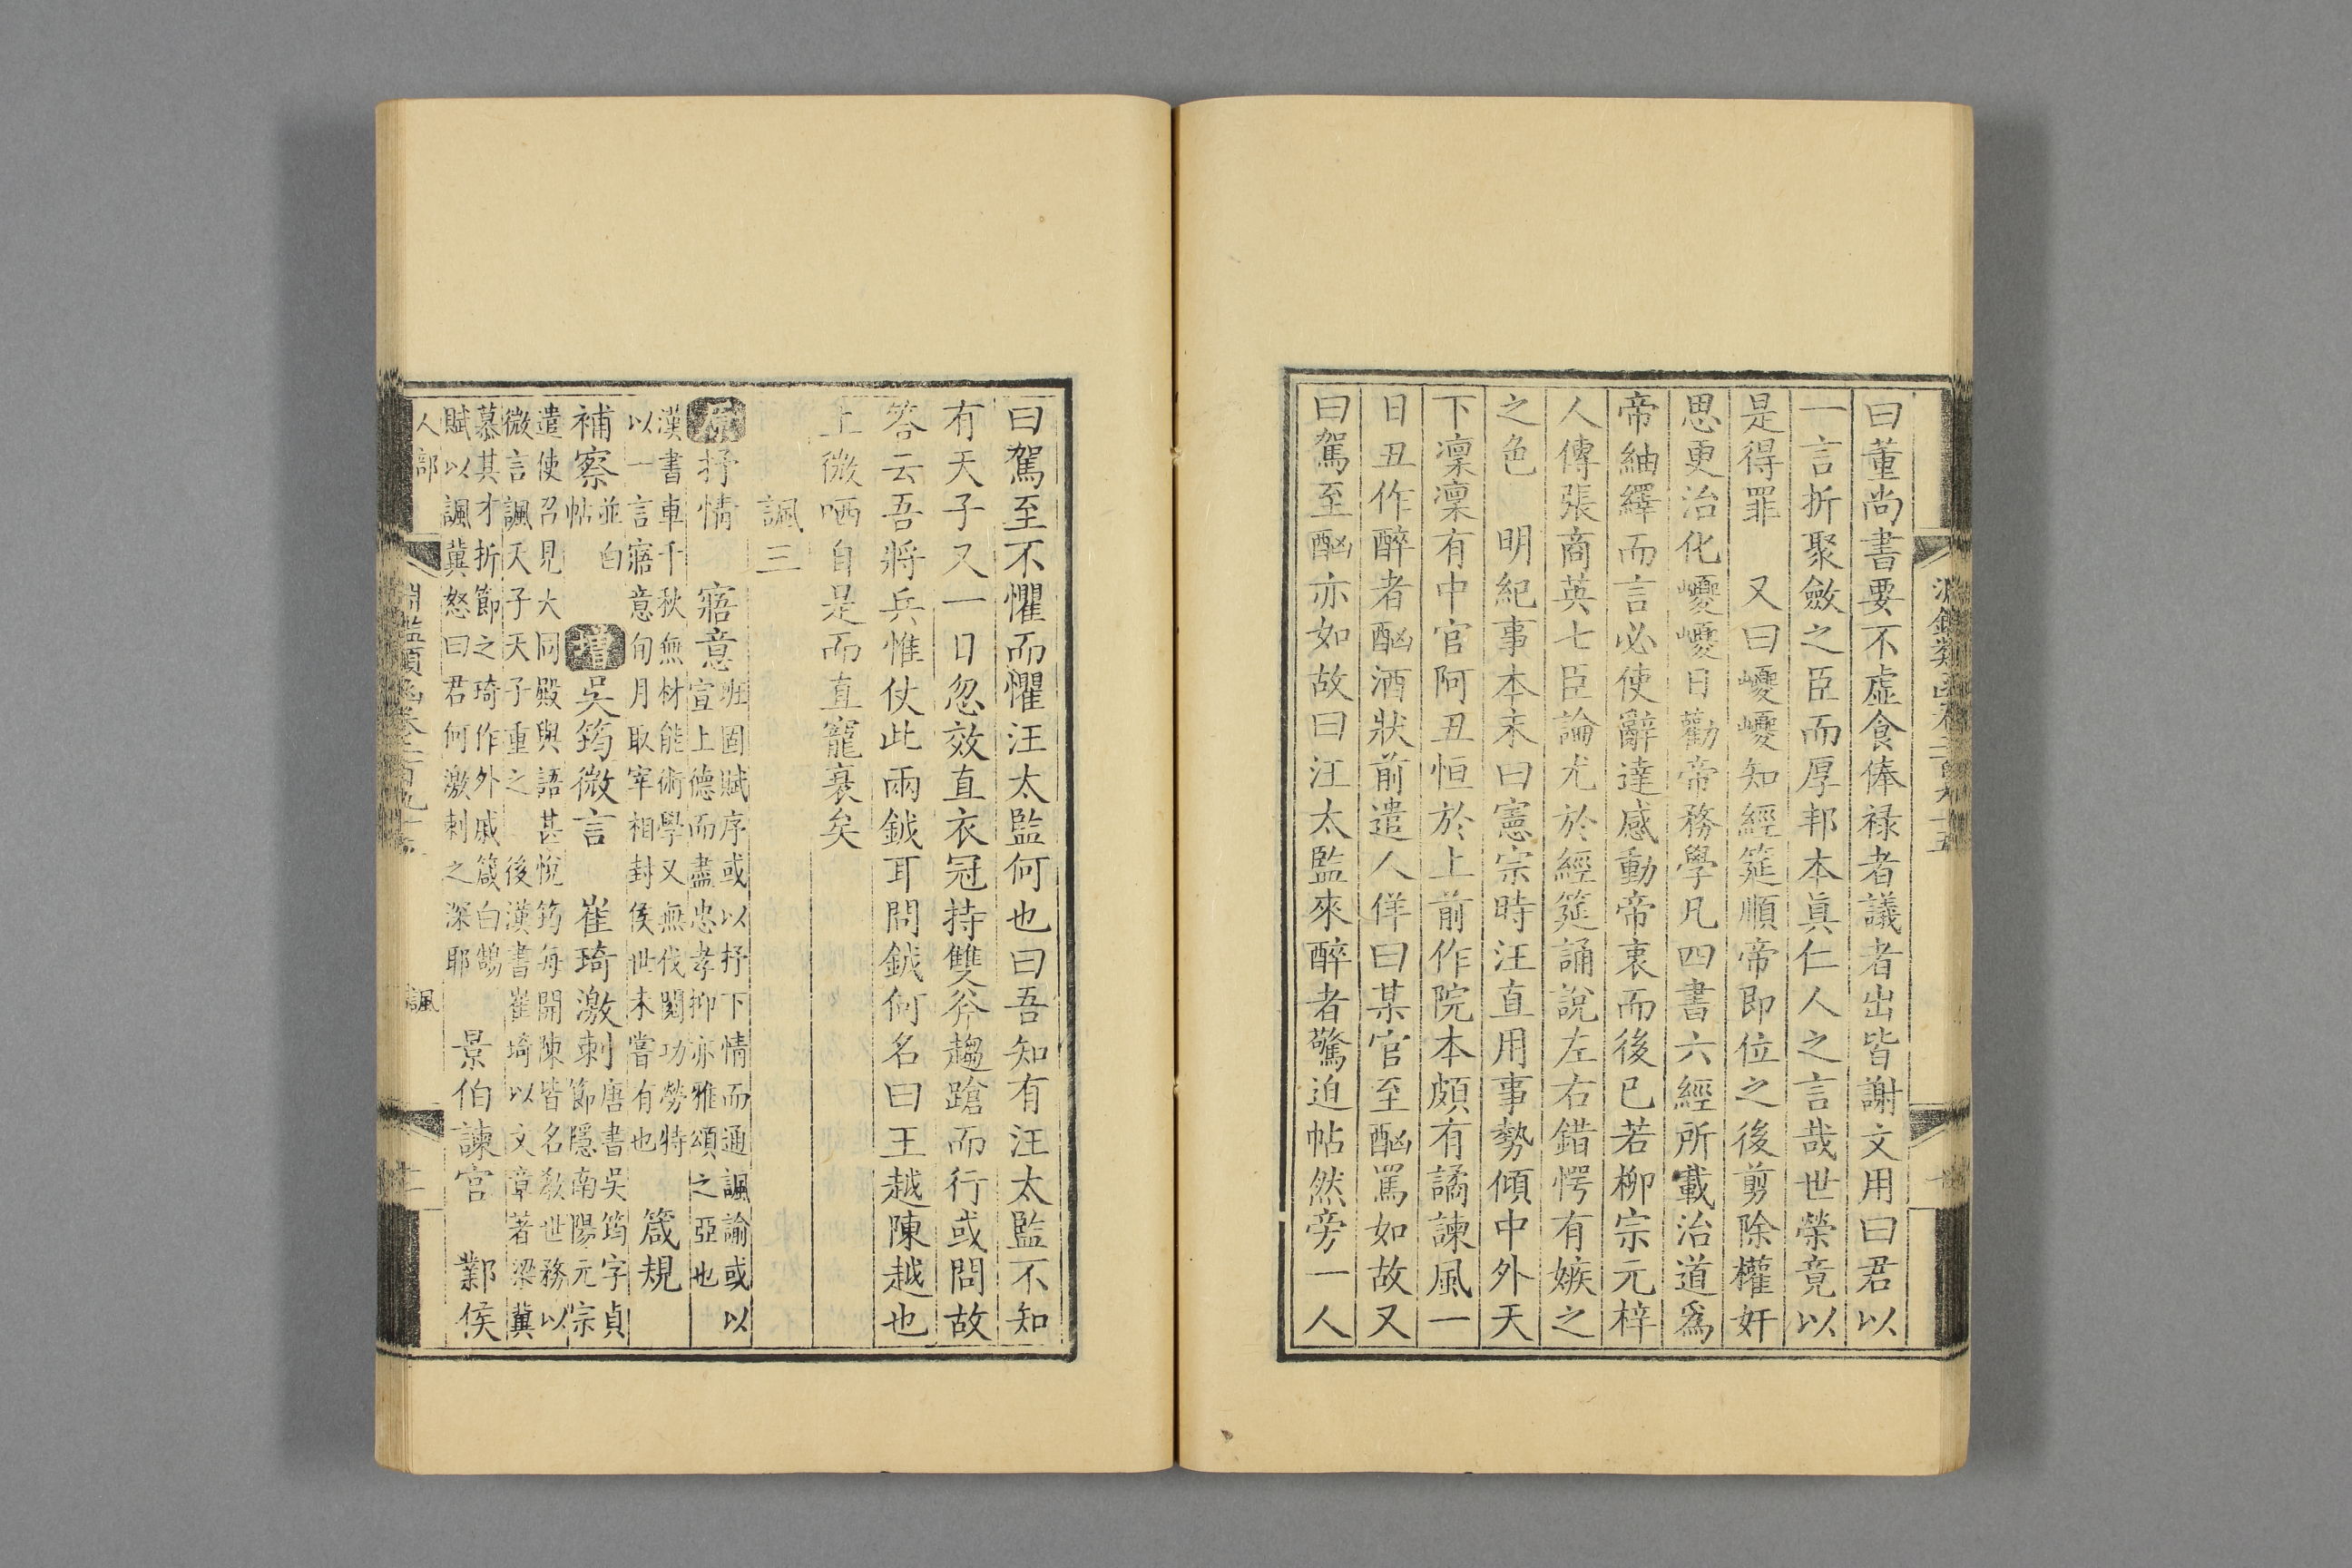 曰董尚書要不虛食俸祿者議者出皆謝文用曰君以
一言折聚斂之臣而厚邦本眞仁人之言哉世榮竟以
是得罪　又曰巙巙知經筵順帝即位之後剪除權奸
思更治化巙巙日勸帝務學凡四書六經所載治道爲
帝紬繹而言必使辭達感動帝衷而後已若柳宗元梓
人傳張商英七臣論尤於經筵誦說左右錯愕有嫉之
之色　明紀事本末曰憲宗時汪直用事勢傾中外天
下凜凜有中官阿丑恒於上前作院本頗有譎諫風一
日丑作醉者酗酒狀前遣人佯曰某官至酗罵如故又
曰駕至酗亦如故曰汪太監來醉者驚迫帖然旁一人
曰駕至不懼而懼汪太監何也曰吾知有汪太監不知
有天子又一日忽效直衣冠持雙斧趨蹌而行或問故
答云吾將兵惟仗此兩鉞耳問鉞何名曰王越陳越也
上微哂自是而直寵衰矣
諷三
原抒情　寤意班固賦序或以抒下情而通諷諭或以
宣上德而盡忠孝抑亦雅頌之亞也
漢書車千秋無材能術學又無伐閱功勞特
以一言寤意旬月取宰相封侯世未嘗有也　箴規
補察並白
帖　增吳筠微言　崔琦激刺唐書吳筠字貞
節隱南陽元宗
遣使召見大同殿與語甚悅筠每開陳皆名敎世務以
微言諷天子天子重之　後漢書崔琦以文章著梁冀
慕其才折節之琦作外戚箴白鵠
賦以諷冀怒曰君何激刺之深耶　景伯諫宮　鄴侯
人部
諷